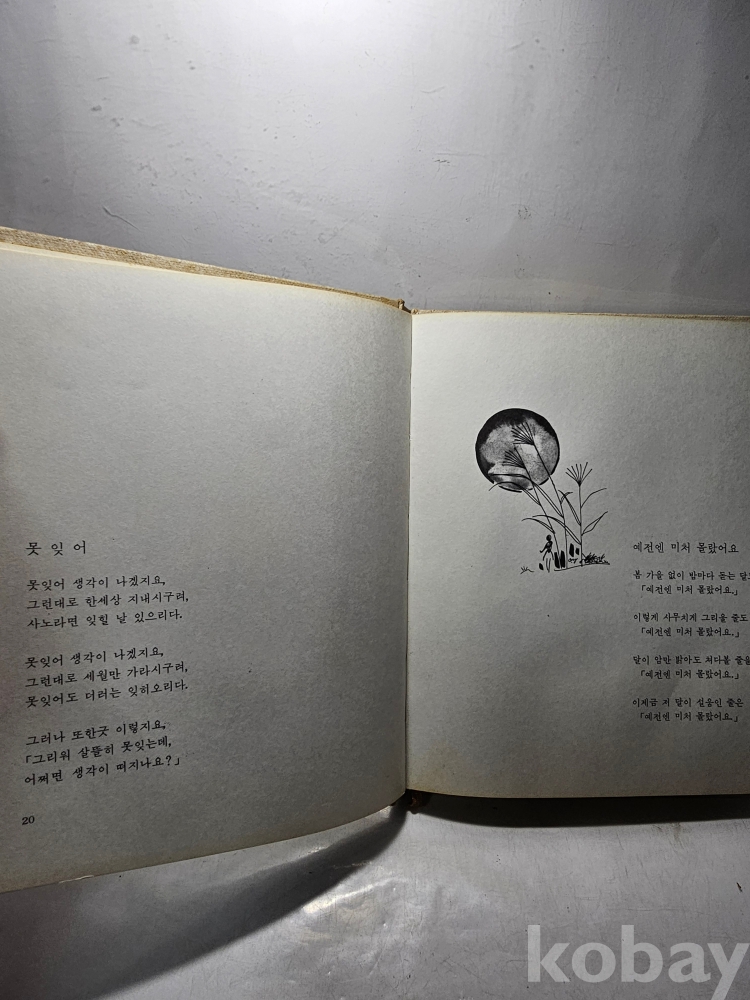 못 잊 어
못잊어 생각이 나겠지요,
그런대로 한세상 지내시구려,
사노라면 잊힐 날 있으리다.
못잊어 생각이 나겠지요,
그런대로 세월만 가라시구려,
못잊어도 더러는 잊히오리다.
그러나 또한긋 이렇지요,
「그리워 살뜰히 못잊는데,
어쩌면 생각이 떠지나요?」
20
예전엔 미처 몰랐어요
봄 가을 없이 밤마다 돋는 달도
「예전엔 미처 몰랐어요.」
이렇게 사무치게 그리울 줄도
「예전엔 미처 몰랐어요.」
달이 암만 밝아도 쳐다볼 줄을
「예전엔 미처 몰랐어요.」
이제금 저 달이 설움인 줄은
「예전엔 미처 몰랐어요.」
kobay